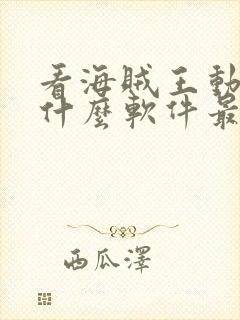 看海賊王動
什麼軟件最
西瓜澤